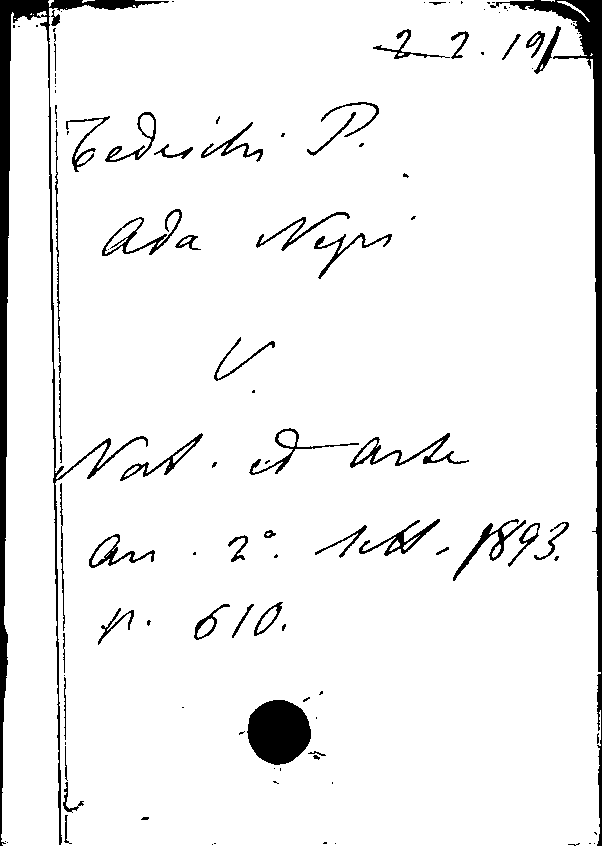 2 2. 19
Tedeschi P.
Ada Negri
V.
Nat. ed Arte
an. 2º. sett. 1893.
p. 610.